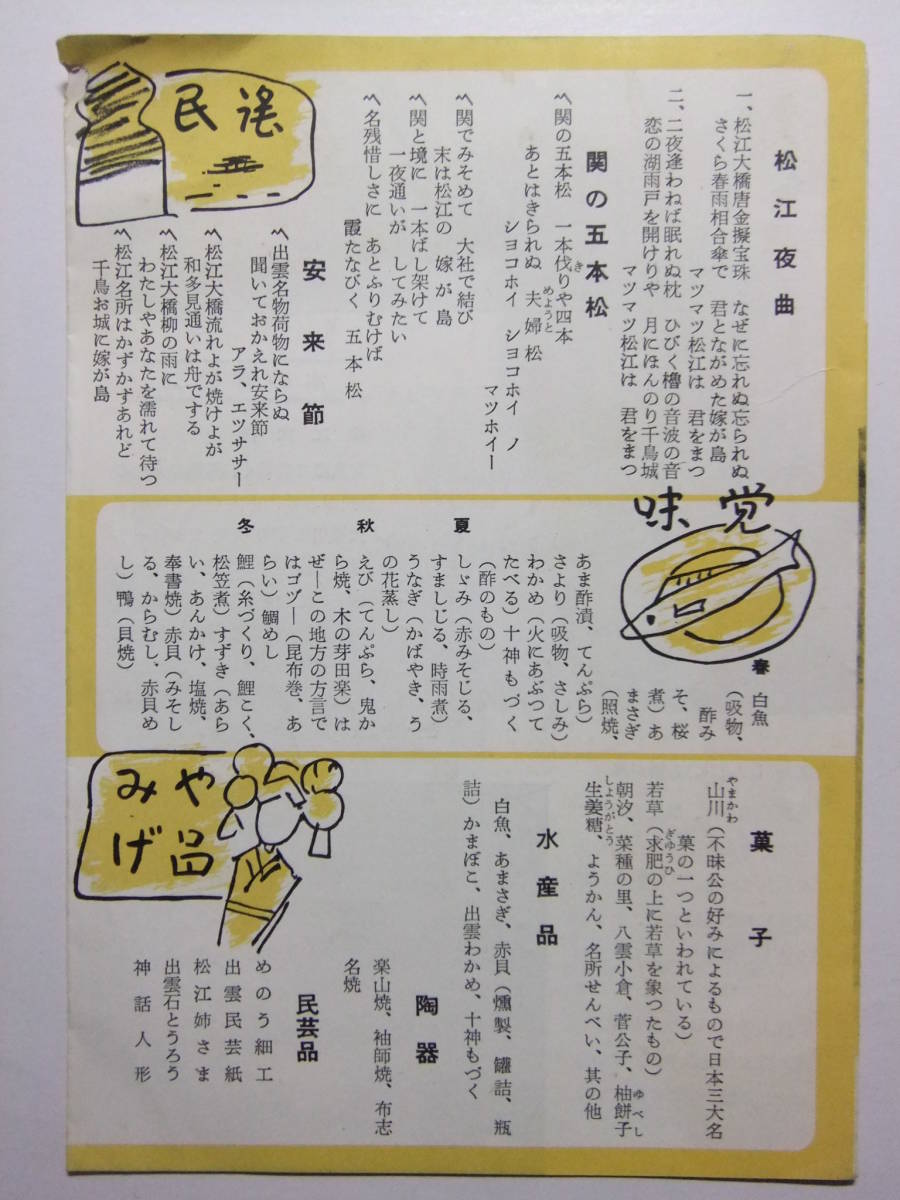 民謡
松江夜曲
一、松江大橋唐金擬宝珠　なぜに忘れぬ忘られぬ
さくら春雨相合傘で　君とながめた嫁が島
マツマツ松江は　君をまつ
二、二夜逢わねば眠れぬ枕　ひびく櫓の音波の音
恋の湖雨戸を開けりや　月にほんのり千鳥城
マツマツ松江は　君をまつ
関の五本松
〽関の五本松　一本伐りや四本
き
あとはきられぬ　夫婦松
めようと
シヨコホイ　シヨコホイ　ノ
マツホイー
〽関でみそめて　大社で結び
末は松江の　嫁が島
〽関と境に　一本ばし架けて
一夜通いが　してみたい
〽名残惜しさに　あとふりむけば
霞たなびく　五本松
安来節
〽出雲名物荷物にならぬ
聞いておかえれ安来節
アラ、エツサツサー
〽松江大橋流れよが焼けよが
和多見通いは舟でする
〽松江大橋柳の雨に
わたしやあなたを濡れて待つ
〽松江名所はかずかずあれど
千鳥お城に嫁が島
味覚
春
白魚
（吸物、
酢み
そ、桜
煮）あ
まさぎ
（照焼、
あま酢漬、てんぷら）
さより（吸物、さしみ）
わかめ（火にあぶつて
たべる）十神もづく
（酢のもの）
夏
しゞみ（赤みそじる、
すましじる、時雨煮）
うなぎ（かばやき、う
の花蒸し）
秋
えび（てんぷら、鬼か
ら焼、木の芽田楽）は
ぜ―この地方の方言で
はゴヅ―（昆布巻、あ
らい）鯛めし
冬
鯉（糸づくり、鯉こく、
松笠煮）すずき（あら
い、あんかけ、塩焼、
奉書焼）赤貝（みそし
る、からむし、赤貝め
し）鴨（貝焼）
みやげ品
菓子
やまかわ
山川（不昧公の好みによるもので日本三大名
菓の一つといわれている）
若草（求肥の上に若草を象つたもの）
ぎゆうひ
朝汐、菜種の里、八雲小倉、菅公子、柚餅子
ゆべし
しようがとう
生姜糖、ようかん、名所せんべい、其の他
水産品
白魚、あまさぎ、赤貝（燻製、罐詰、瓶
詰）かまぼこ、出雲わかめ、十神もづく
陶器
楽山焼、袖師焼、布志
名焼
民芸品
めのう細工
出雲民芸紙
松江姉さま
出雲石とうろう
神話人形